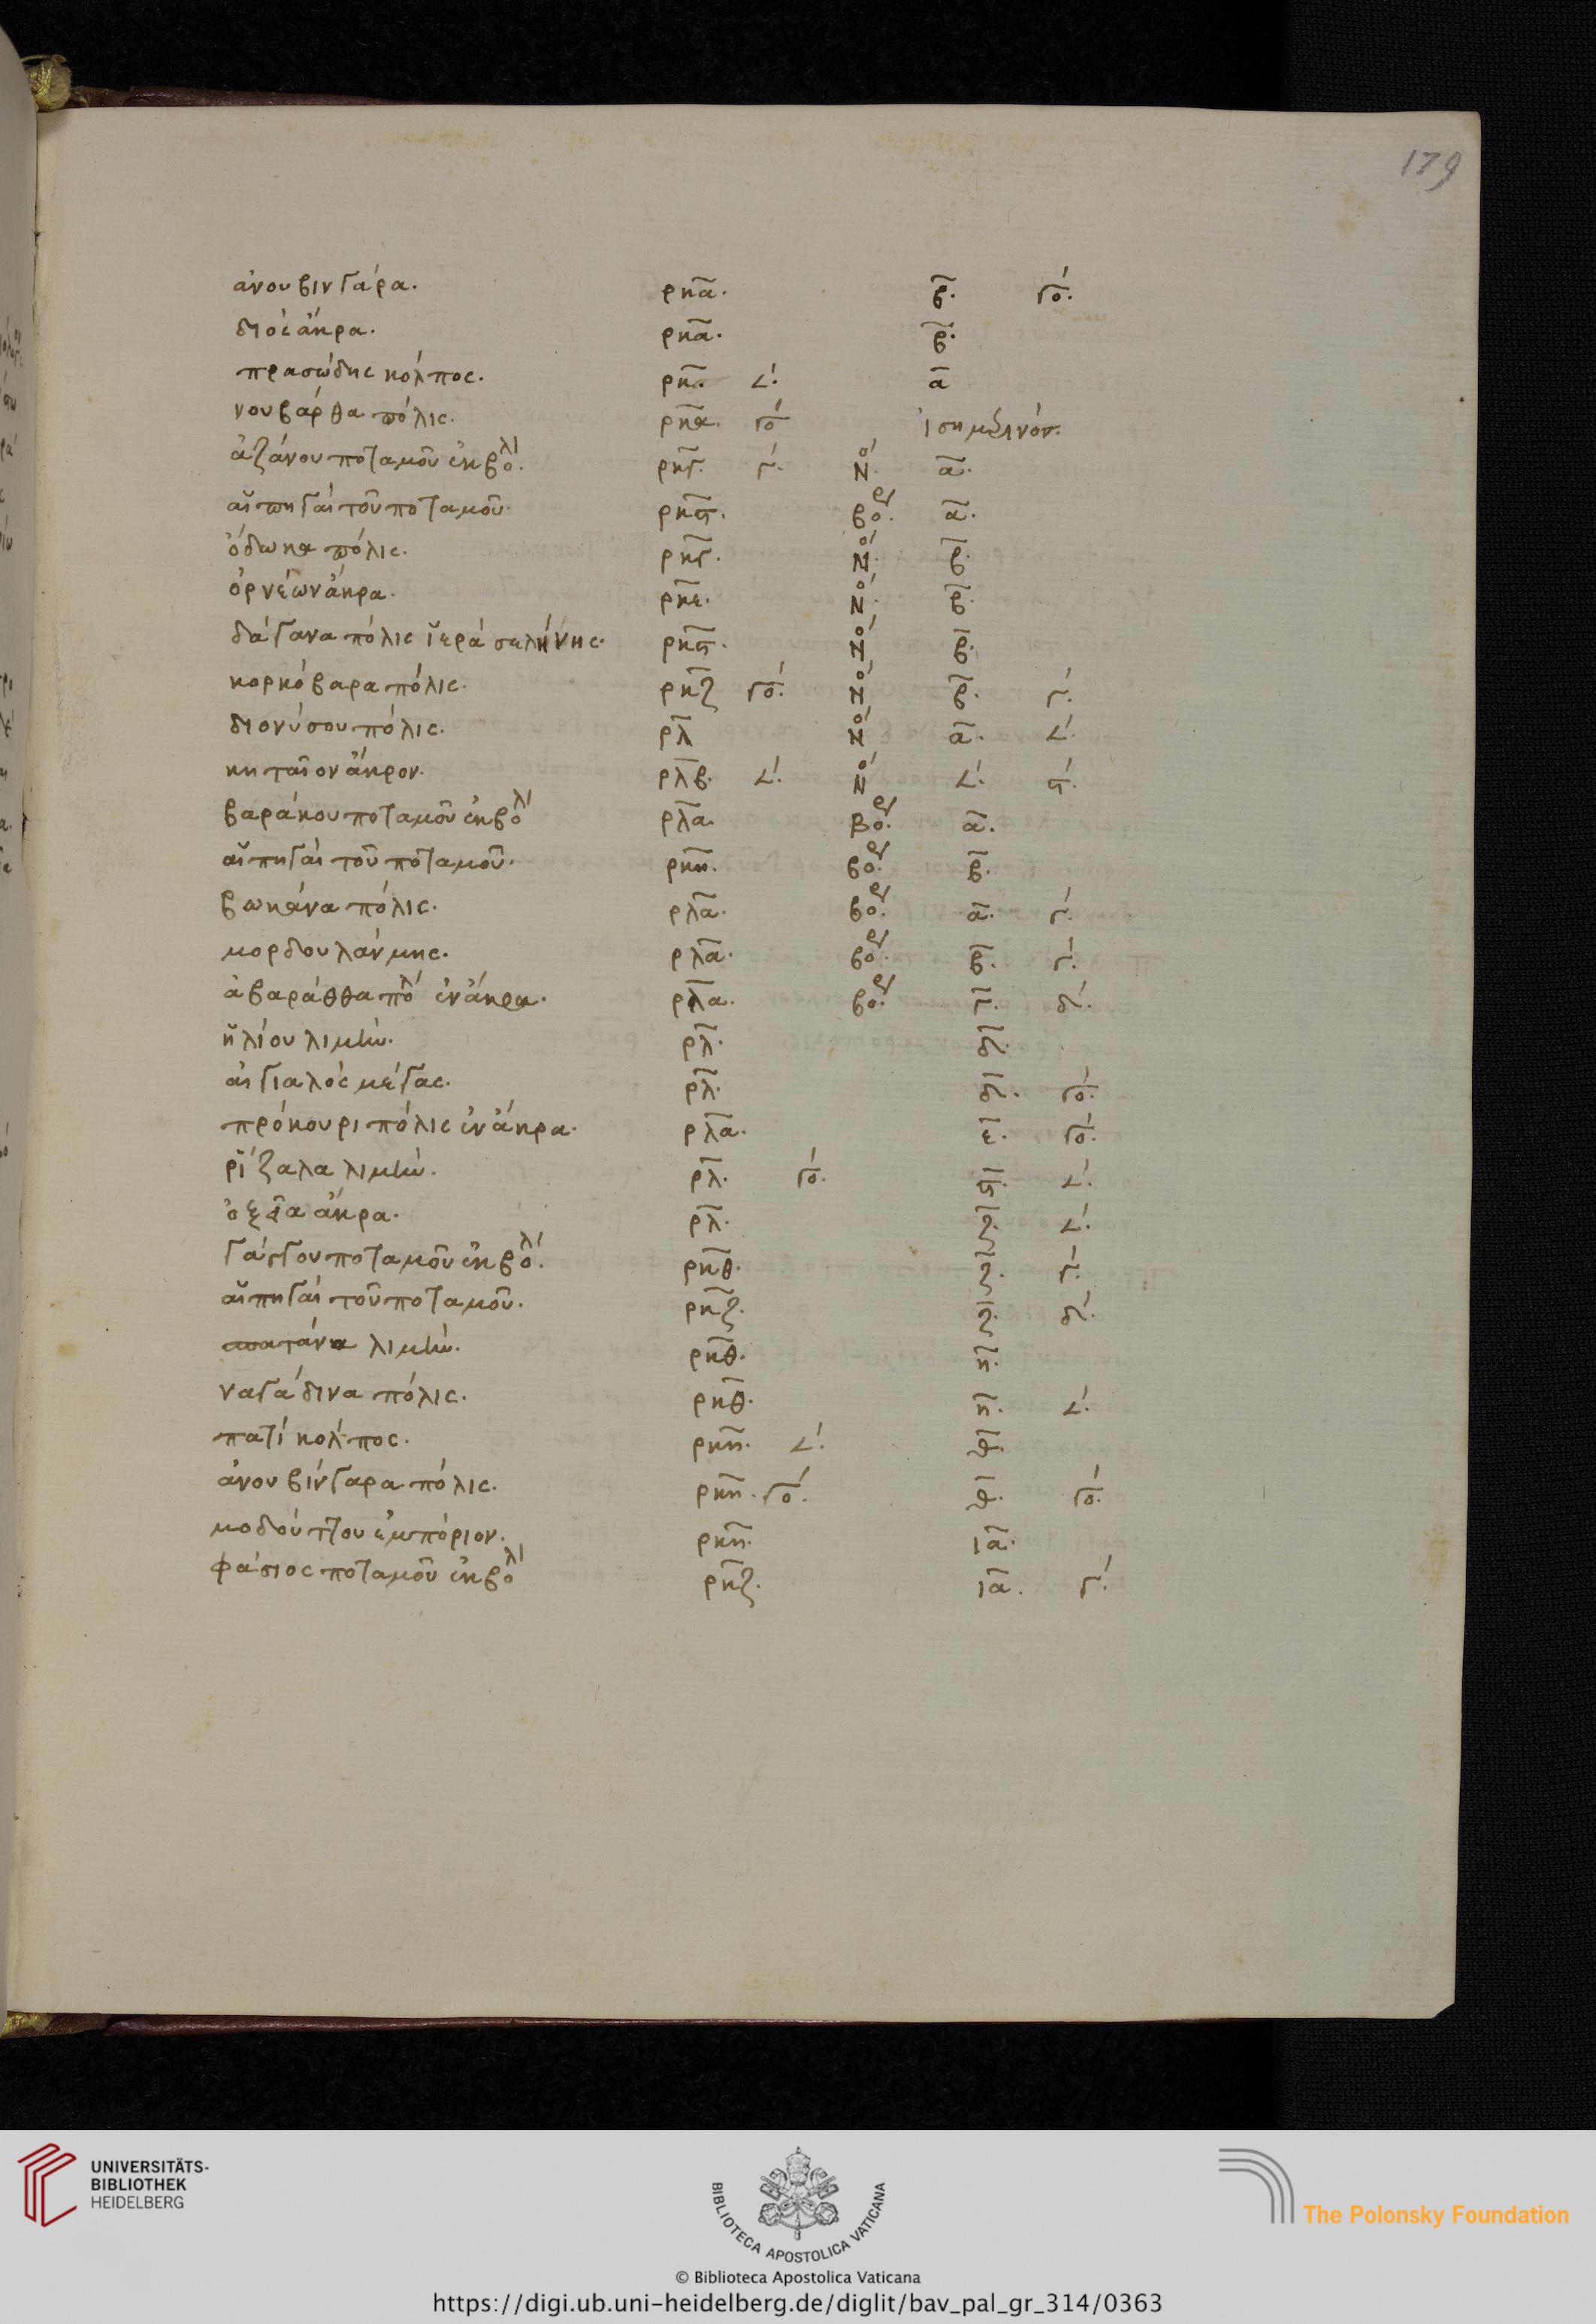 179
ἀνουβινγάρα. ρκα. β. γο.
διὸς ἄκρα. ρκα. β.
πρασώδης κόλπος. ρκα ∠. α
νουβάρθα πόλις. ρκα. γο ἰσημερινός.
ἀζάνου ποταμοῦ ἐκβολ. ρκγ. γ. νο. α.
αἱ πηγαὶ τοῦ ποταμοῦ. ρκϛ. βορ. α.
ὀδωκα πόλις. ρκγ. νο. β.
ὀρνέων ἄκρα. ρκε. νο. β.
δάγανα πόλις ἱερὰ σελήνης. ρκϛ. νο β.
κορκόβαρα πόλις. ρκζ γο. νο β. γ.
διονύσου πόλις. ρλ νο α. ∠.
κηταῖον ἄκρον. ρλβ. ∠. νο ∠. ϛ.
βαράκου ποταμοῦ ἐκβολ ρλα. βορ. α.
αἱ πηγαὶ τοῦ ποταμοῦ. ρκη. βορ. β.
βωκάνα πόλις. ρλα. βορ. α. γ.
μορδουλάνμης. ρλα. βορ. β. γ.
ἀβαράθθα πολ ἐν ἄκρα. ρλα. βορ. γ. δ.
ἡλίου λιμήν. ρλ. δ.
αἰγιαλὸς μέγας. ρλ. δ. γο.
πρόκουρι πόλις ἐν ἄκρα. ρλα. ε. γο.
ῥίζαλα λιμήν. ρλ. γο. ϛ. ∠.
ὀξεῖα ἄκρα. ρλ. ζ. ∠.
γάγγου ποταμοῦ ἐκβολ. ρκθ. ζ. γ.
αἱ πηγαὶ τοῦ ποταμοῦ. ρκζ. ζ. δ.
σπατάνα λιμήν. ρκθ. η.
ναγάδινα πόλις. ρκθ. η. ∠.
πατί κόλπος. ρκη. ∠. θ.
ἀνουβίνγαρα πόλις. ρκη. γο. θ. γο.
μοδούττου ἐμπόριον. ρκη. ια.
φάσιος ποταμοῦ ἐκβολ ρκζ. ια. γ.
UNIVERSITÄTS-
BIBLIOTHEK
HEIDELBERG
BIBLIOTECA APOSTOLICA VATICANA
The Polonsky Foundation
© Biblioteca Apostolica Vaticana
https://digi.ub.uni-heidelberg.de/diglit/bav_pal_gr_314/0363